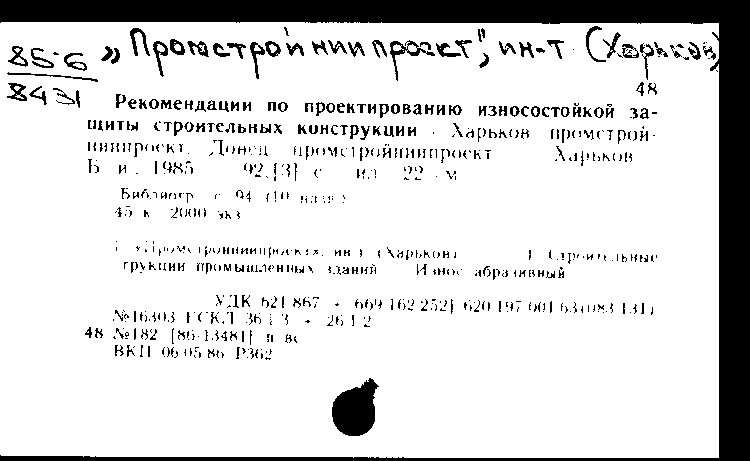 85-6 „Промстройниипроект", ин-т (Харьков)
8431
48
Рекомендации по проектированию износостойкой за-
щиты строительных конструкции Харьков промстрой-
ниипроект, Донец промстройниипроект Харьков
Б и, 1985 92,[3] с ил 22 см
Библиогр с 94 (10 назв)
45 к 2000 экз
«Промстройниипроект» ин-т (Харьков) 1 Строительные
трукции промышленных зданий Износ абразивный
УДК 621 867 + 669 162 252] 620 197 001 63(083 131)
№16303 ЕСКЛ 36 1 3 + 26 1 2
48 №182 [86-13481] п вс
ВКП 06 05 86 Р362